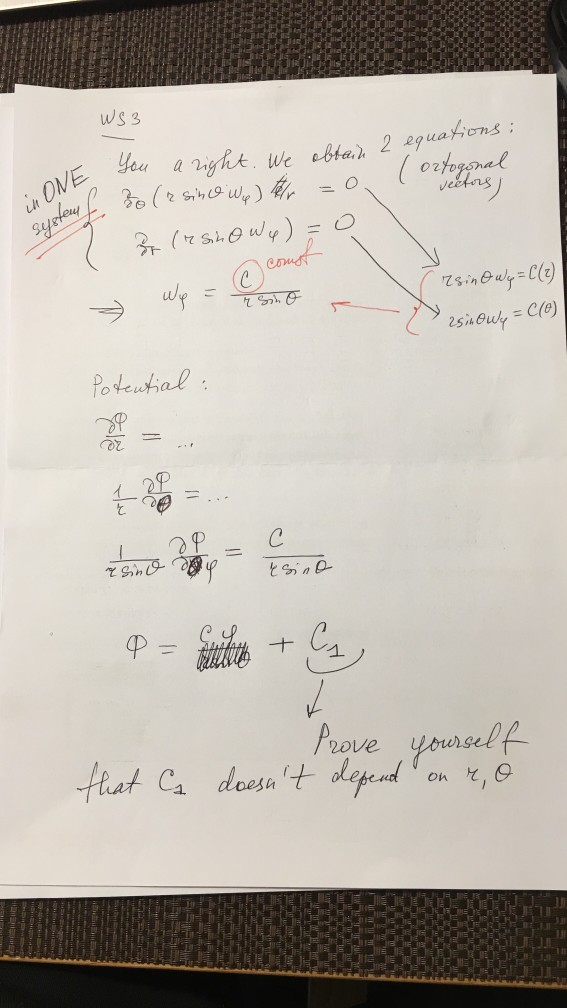 WS3
You a right. We obtain 2 equations:
(ortogonal
vectors)
in ONE
system
∂θ (r sinθ wφ) /r = 0
∂r (r sinθ wφ) = 0
const
⇒ wφ = C / r sinθ
r sinθ wφ = C(r)
r sinθ wφ = C(θ)
Potential:
∂φ/∂r = ...
1/r ∂φ/∂θ = ...
1/(r sinθ) ∂φ/∂φ = C/(r sinθ)
φ = Cφ + C1
Prove yourself
that C1 doesn't depend on r, θ